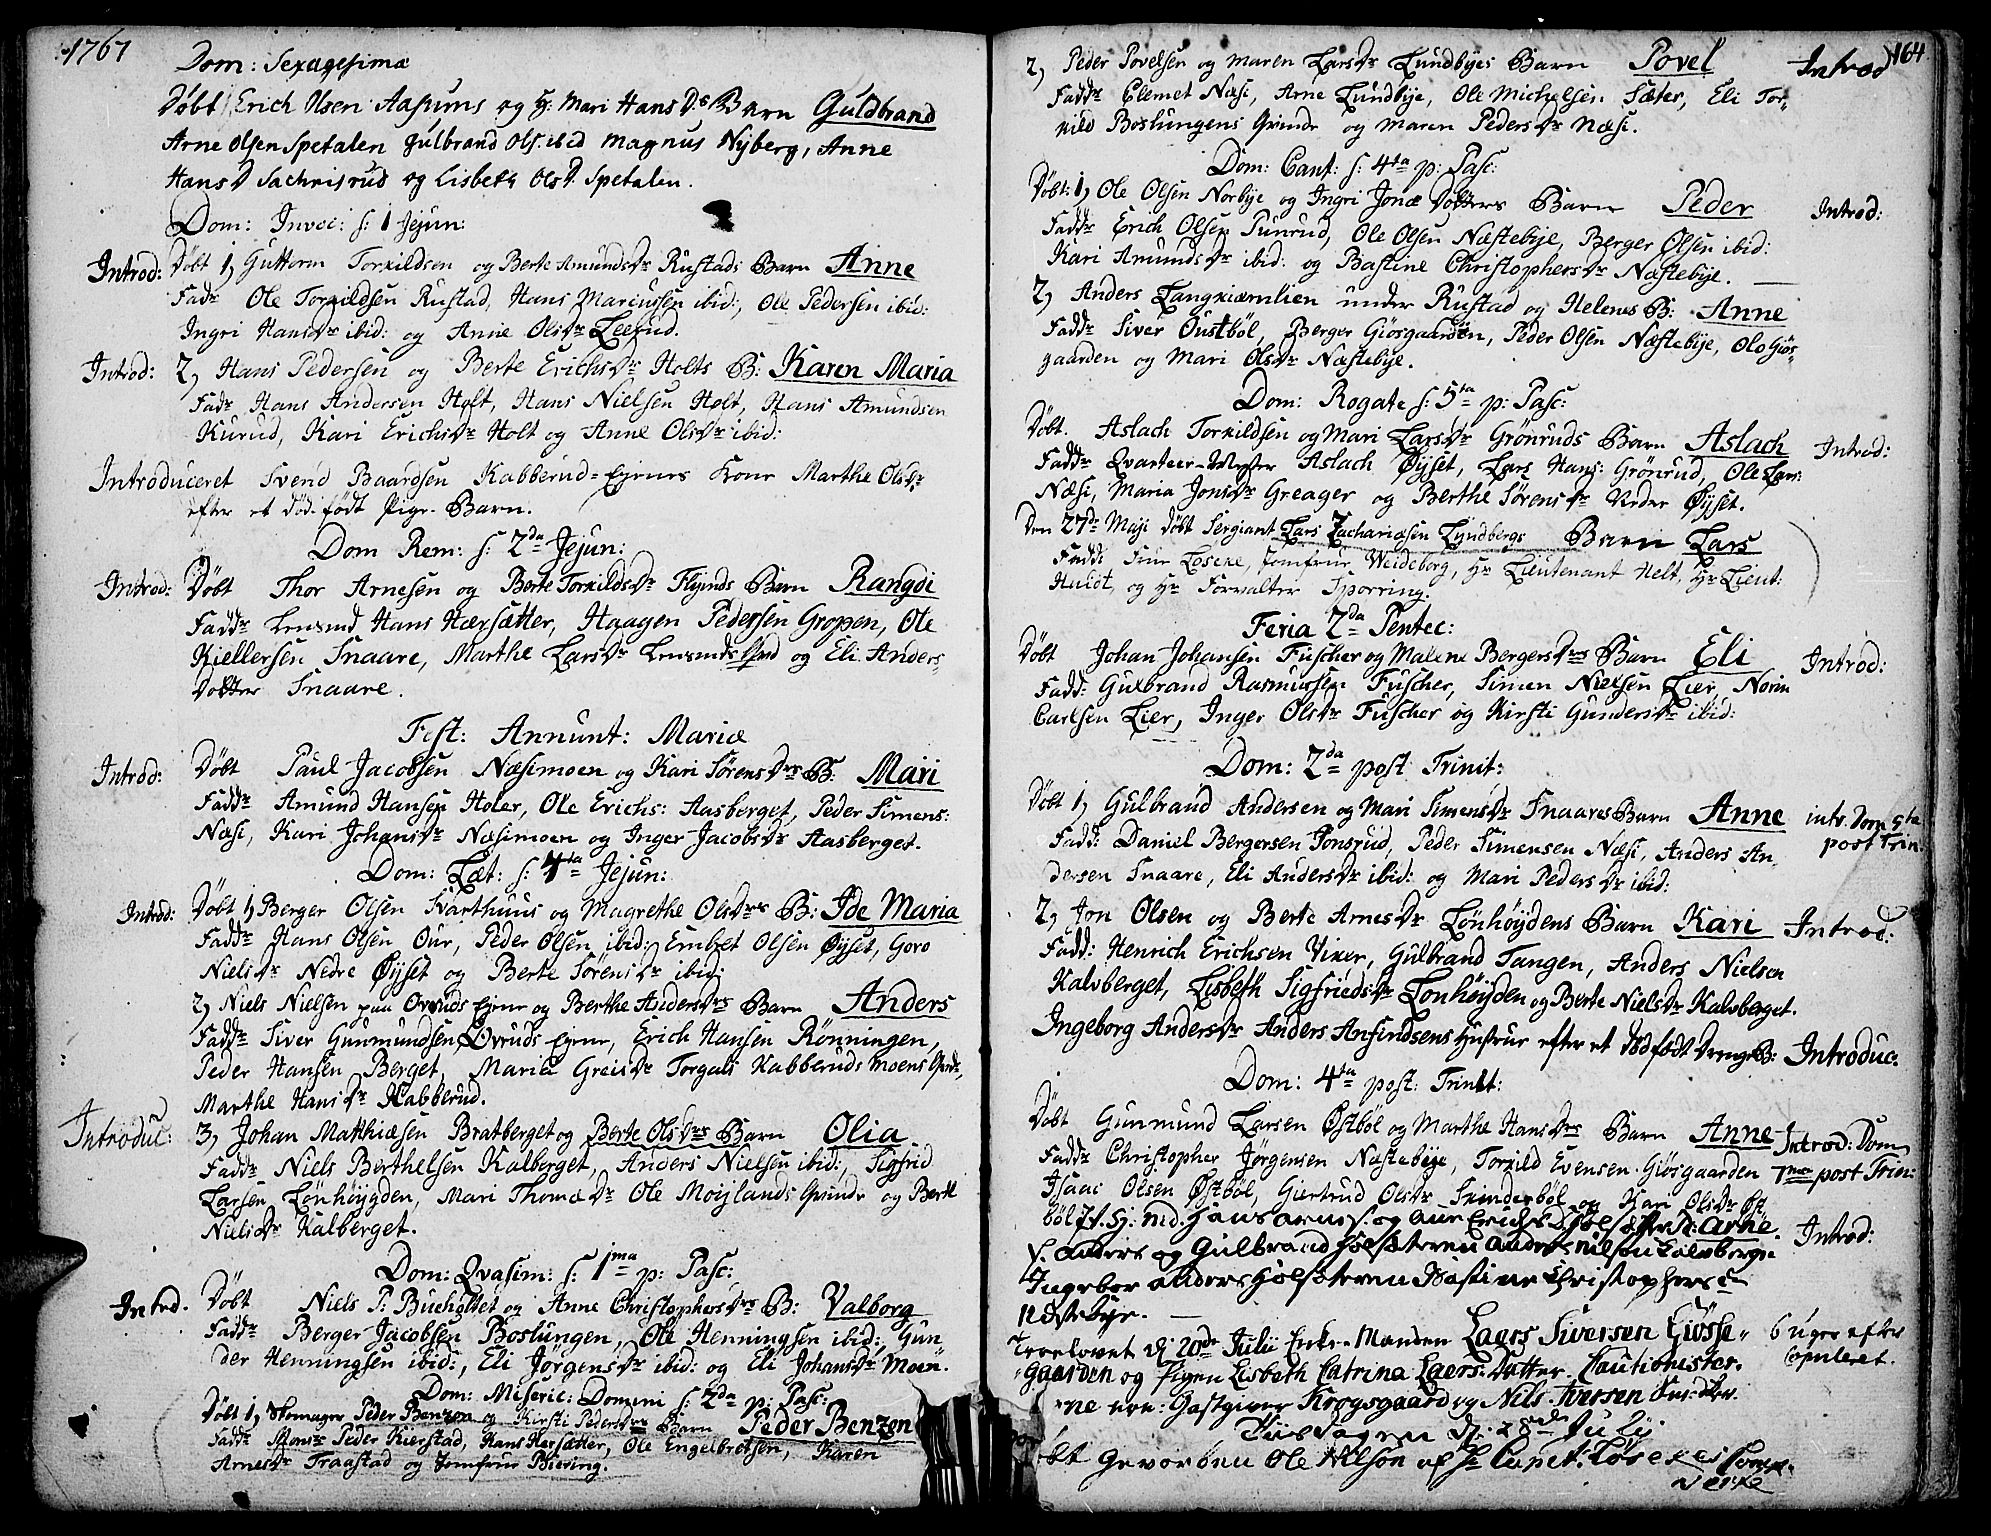 1767
Dom: Sexagesimæ
Døbt Erich Olsen Aasums og H: Mari Hans D.s Barn Guldbrand
Arne Olsen Spetalen Gulbrand Ols. ibid Magnus Nyberg, Anne
Hans D Sachrisrud og Lisbeth Ols D. Spetalen.
Dom: Invoc: s: 1 Jejun:
Introd: Døbt 1, Guttorm Torkildsen og Berte Amunds Dr Rustads Barn Anne
Fadr Ole Torkildsen Rustad, Hans Marcussen ibid:, Ole Pedersen ibid:
Ingri Hans Dr ibid: og Anne Ols Dr Leerud.
Introd: 2, Hans Pedersen og Berte Erichs Dr Holts B: Karen Maria
Fadr Hans Andersen Holt, Hans Nielsen Holt, Hans Amundsen
Kurud, Kari Erichs Dr Holt og Anne Ols Dr ibid:
Introduceret Svend Baardsen Kabberud-Ejernes Kone Marthe Ols Dr
efter et død-født Pige-Barn.
Dom Rem: s: 2da Jejun:
Introd: Døbt Thor Arnesen og Berte Torkilds Dr Flyinds Barn Rangdi
Faddr Lensmd Hans Hærsætter, Haagen Pedersen Gropen, Ole
Kiellersen Snaare, Marthe Lars Dr Lensmds og Eli Anders
Dotter Snaare.
Fest: Annunt: Mariæ
Introd: Døbt Paul Jacobsen Næsimoen og Kari Sørens Drs B: Mari
Faddr Amund Hansen Holer, Ole Erichs: Aasberget, Peder Simens:
Næsi, Kari Johans Dr Næsimoen og Inger Jacobs Dr Aasberget.
Dom: Læt: s: 4ta Jejun:
Introd: Døbt 1, Berger Olsen Svarthuus og Magrethe Ols Drs B: Ide Maria
Faddr Hans Olsen Our, Peder Olsen ibid: Embret Olsen Øyset, Goro
Niels Dr Nedre Øyset og Berte Sørens Dr ibid:
2, Niels Nielsen paa Ovruds Ejerne og Berthe Anders Drs Barn Anders
Faddr Siver Gunmundsen Ovruds Ejerne, Erich Hansen Rønningen,
Peder Hansen Berget, Maria Greis Dr Torgals Kabberuds moens
Marthe Hans Dr Kabberud.
Introduc: 3, Johan Matthiæsen Bratberget og Berte Ols Drs Barn Olia
Faddr Niels Berthelsen Kalberget, Anders Nielsen ibid:, Sigfrid
Larsen Lønhøygden, Mari Thomæ Dr Ole Moijlands Qvinde og Berte
Niels Dr Kalberget.
Dom: Qvasim: s: 1ma p: Pasc:
Introd. Døbt Niels P: Bueholtet og Anne Christophers Drs B: Valborg
Faddr Berger Jacobsen Boslungen, Ole Henningsen ibid:, Gun
der Henningsen ibid:, Eli Jørgens Dr ibid: og Eli Johans Dr Moen.
Dom: Miseric: Domini s: 2da p: Pasc:
Døbt 1, Skomager Peder Benzen og Kirsti Peders Drs Barn Peder Benzen
Faddr Monsr Peder Kierstad, Hans Hersætter, Ole Engelbretsen, Karen
Arnes Dr Traastad og Jomfrue Biering.
164
2, Peder Povelsen og Maren Lars Dr Lundbyes Barn Povel Introd
Faddr Clemet Næsi, Arne Lundbye, Ole Michelsen Sæter, Eli Tor-
kild Boslungens Qvinde og Maren Peders Dr Næsi.
Dom: Cant: s: 4ta p: Pasc:
Døbt: 1, Ole Olsen Norbye og Ingri Jonæ Dotters Barn Peder Introd:
Faddr Erich Olsen Punrud, Ole Olsen Næstebye, Berger Olsen ibid:
Kari Amunds Dr ibid: og Bastine Christophers Dr Næstebye.
2, Anders Langkiærnlien under Rustad og Helenes B: Anne
Faddr Siver Oustbøl, Berger Giøsgaarden, Peder Olsen Næstebye, Ole Giøs-
gaarden og Mari Ols Dr Næstebye.
Dom: Rogate s: 5ta p: Pasc:
Døbt. Aslach Torkildsen og Mari Lars Dr Grønruds Barn Aslach Introd:
Faddr Qvarteer-Mester Aslach Øyset, Lars Hans: Grønrud, Ole Lars:
Næsi, Maria Jons Dr Greager og Berthe Sørens Dr Nedre Øyset.
Den 27de Maji døbt Sergiant Lars Zachariæsen Lyndbergs Barn Lars
Fadd: Frue Løseke, Jomfrue Weideborg, Hr Lieutenant Helt, Hr Lieut:
Huidt, og Hr Forvalter Sporring.
Feria 2da Pentec:
Døbt Johan Johansen Fuscher og Malene Bergers Drs Barn Eli Introd:
Fadd: Gulbrand Rasmussen Fuscher, Simen Nielsen Lier, Norin
Carlsen Lier, Inger Ols Dr Fuscher og Kirsti Gunders Dr ibid:
Dom: 2da post Trinit:
Døbt 1, Gulbrand Andersen og Mari Simens Dr Snaares Barn Anne intr. Dom 5ta
post Trin.
Fadd: Daniel Bergersen Ponsrud, Peder Simensen Næsi, Anders An-
dersen Snaare, Eli Anders Dr ibid: og Mari Peders Dr ibid:
2, Jon Olsen og Berte Arnes Dr Lønhøydens Barn Kari Introd:
Fadd: Henrich Erichsen Viker, Gulbrand Tangen, Anders Nielsen
Kalvberget, Lisbeth Sigfrieds Dr Lønhøigden og Berte Niels Dr Kalvberget.
Ingeborg Anders Dr Anders Ansindsens Hustrue efter et dødfødt Drenge B: Introduc:
Dom: 4ta post: Trinit:
Døbt Gunmund Larsen Østbøl og Marthe Hans Drs Barn Anne Introd: Dom
7ma post Trin:
Faddr Christopher Jørgensen Næstebye, Torkild Evensen Giøsgaarden
Isaac Olsen Østbøl, Giertrud Ols Dr Skinderbøl og Kari Ols Dr Øst
bøl. Hans Arnes. og Ane Erichs D Arne. Introd:
f. Anders og Gulbrand Holsæteren Anders Nilsen Kalvberge
Ingebor Anders Holsæteren Bastine Christophers D
Nestebye.
Troelovet d. 20de Julii Enke-Manden Laers Siversen Giøsse- 6 uger efter
gaarden og Pigen Lisbeth Catrina Laers-Datter. Cautionister- Copuleret.
ne ere: Gastgiver Krogsgaard og Nils Iversen
Tiisdagen d: 28de July
Døbt Gevorben Ole Nilson af Hr Capit: Løsekes Comp.